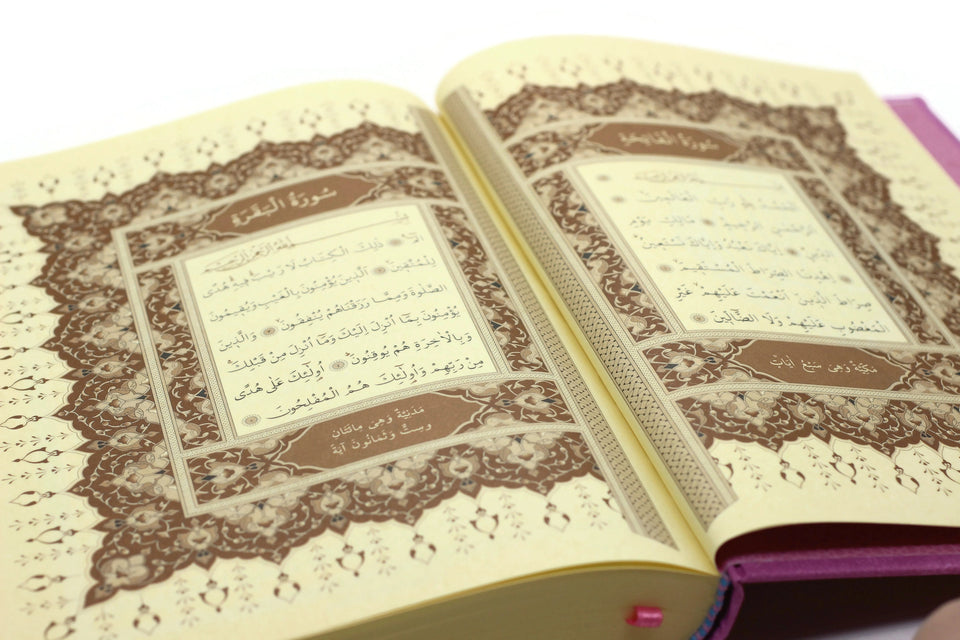 سُورَةُ الْفَاتِحَةِ
الْعَالَمِينَ
الرَّحِيمِ مَالِكِ يَوْمِ
الدِّينِ إِيَّاكَ نَعْبُدُ وَإِيَّاكَ نَسْتَعِينُ
اهْدِنَا الصِّرَاطَ الْمُسْتَقِيمَ
صِرَاطَ الَّذِينَ أَنْعَمْتَ عَلَيْهِمْ غَيْرِ
الْمَغْضُوبِ عَلَيْهِمْ وَلَا الضَّالِّينَ
مَكِّيَّةٌ وَهِيَ سَبْعُ آيَاتٍ
سُورَةُ الْبَقَرَةِ
الٓمٓ ذٰلِكَ الْكِتَابُ لَا رَيْبَ فِيهِ هُدًى
لِلْمُتَّقِينَ الَّذِينَ يُؤْمِنُونَ بِالْغَيْبِ وَيُقِيمُونَ
الصَّلٰوةَ وَمِمَّا رَزَقْنَاهُمْ يُنْفِقُونَ وَالَّذِينَ
يُؤْمِنُونَ بِمَا أُنْزِلَ إِلَيْكَ وَمَا أُنْزِلَ مِنْ قَبْلِكَ
وَبِالْاٰخِرَةِ هُمْ يُوقِنُونَ أُولٰئِكَ عَلٰى هُدًى
مِنْ رَبِّهِمْ وَأُولٰئِكَ هُمُ الْمُفْلِحُونَ
مَدَنِيَّةٌ وَهِيَ مِائَتَانِ
وَسِتٌّ وَثَمَانُونَ آيَةً